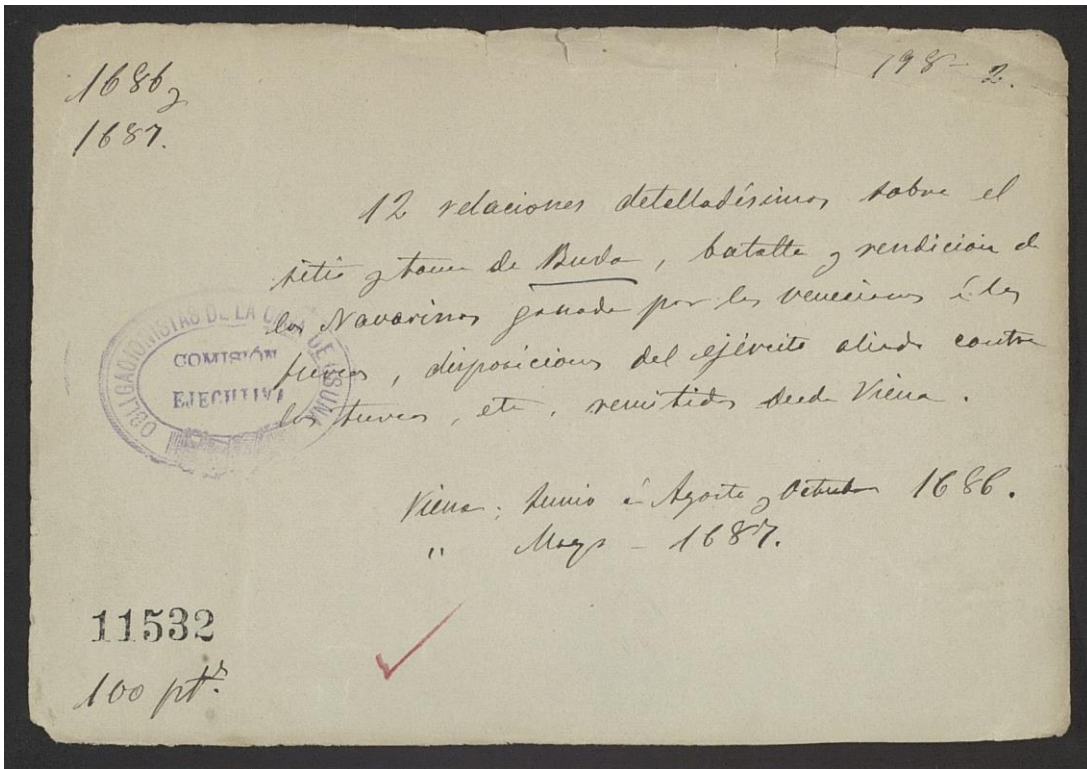 1686 y
1687.
198 - 2.
12 relaciones detalladísimas sobre el
sitio y toma de Buda, batalla y rendición de
los Navarinos ganada por los venecianos á los
turcos, disposiciones del ejército aliado contra
los turcos, etc, remitidas desde Viena.
OBLIGACIONISTAS DE LA CASA DE OSUNA
COMISIÓN
EJECUTIVA
Viena; Junio á Agosto y Octubre 1686.
" Mayo - 1687.
11532
100 pts.